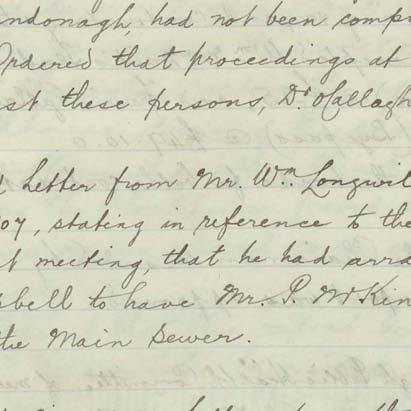 ndonagh, had not been comp
Ordered that proceedings at
st these persons, Dr. O'Callagh
Letter from Mr. Wm. Longwil
07, stating in reference to the
t meeting, that he had arra
bell to have Mr. P. McKin
the Main Sewer.